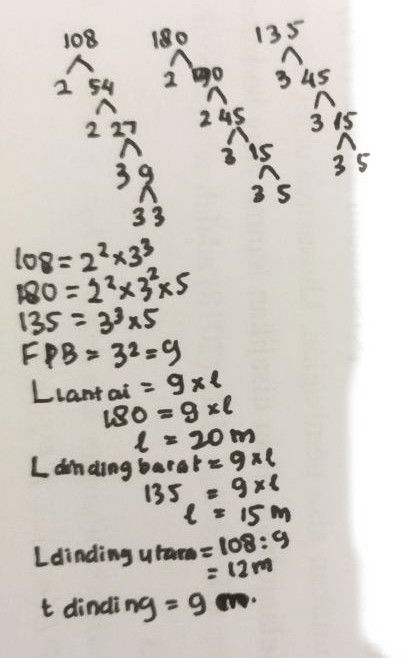 108 180 135
2 54 2 90 3 45
2 27 2 45 3 15
3 9 3 15 3 5
3 3 3 5
108 = 2² × 3³
180 = 2² × 3² × 5
135 = 3³ × 5
FPB = 3² = 9
L lantai = 9 × l
180 = 9 × l
l = 20 m
L dinding barat = 9 × l
135 = 9 × l
l = 15 m
L dinding utara = 108 : 9
= 12 m
t dinding = 9 m.